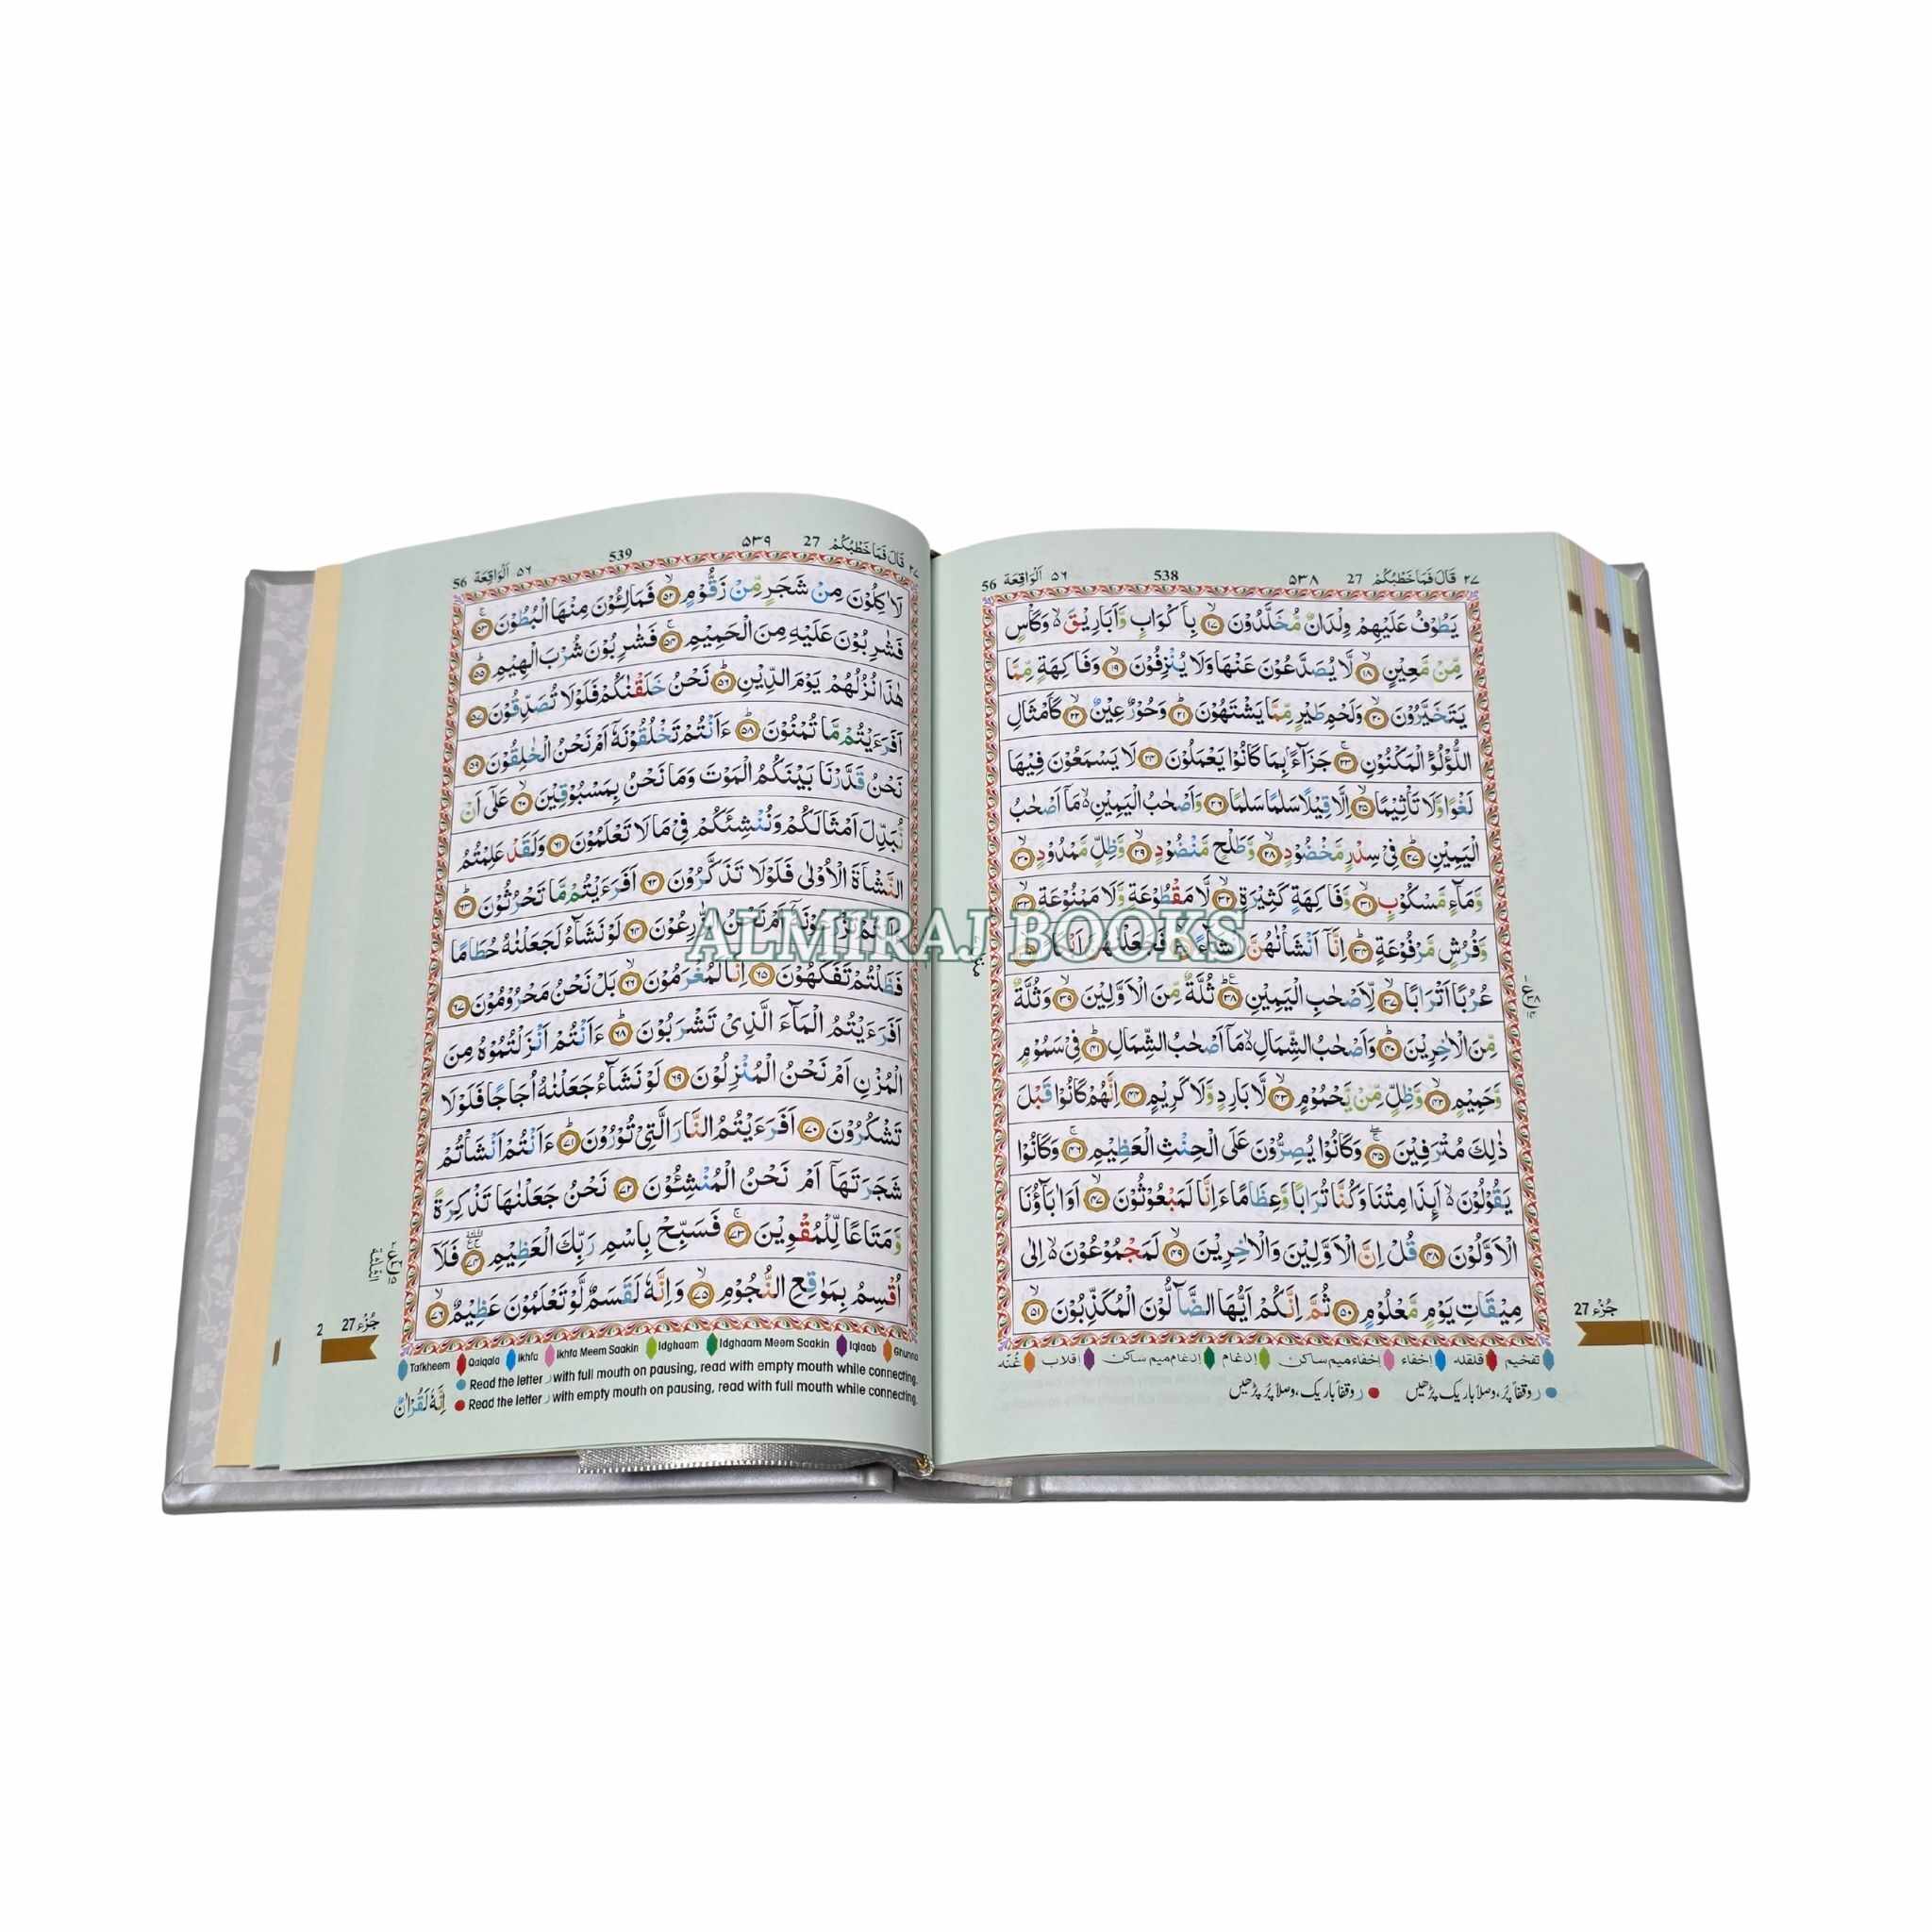 ٢٧ قَالَ فَمَا خَطْبُكُمْ 27 ٥٣٨ 538 ٥٦ اَلْوَاقِعَة 56
يَطُوْفُ عَلَيْهِمْ وِلْدَانٌ مُّخَلَّدُوْنَ ۙ﴿١٧﴾ بِاَكْوَابٍ وَّاَبَارِيْقَ ۙ وَكَاْسٍ
مِّنْ مَّعِيْنٍ ۙ﴿١٨﴾ لَّا يُصَدَّعُوْنَ عَنْهَا وَلَا يُنْزِفُوْنَ ۙ﴿١٩﴾ وَفَاكِهَةٍ مِّمَّا
يَتَخَيَّرُوْنَ ۙ﴿٢٠﴾ وَلَحْمِ طَيْرٍ مِّمَّا يَشْتَهُوْنَ ؕ﴿٢١﴾ وَحُوْرٌ عِيْنٌ ۙ﴿٢٢﴾ كَاَمْثَالِ
اللُّؤْلُؤِ الْمَكْنُوْنِ ۚ﴿٢٣﴾ جَزَآءًۢ بِمَا كَانُوْا يَعْمَلُوْنَ ﴿٢٤﴾ لَا يَسْمَعُوْنَ فِيْهَا
لَغْوًا وَّلَا تَاْثِيْمًا ۙ﴿٢٥﴾ اِلَّا قِيْلًا سَلٰمًا سَلٰمًا ﴿٢٦﴾ وَاَصْحٰبُ الْيَمِيْنِ ۙ مَاۤ اَصْحٰبُ
الْيَمِيْنِ ؕ﴿٢٧﴾ فِيْ سِدْرٍ مَّخْضُوْدٍ ۙ﴿٢٨﴾ وَّطَلْحٍ مَّنْضُوْدٍ ۙ﴿٢٩﴾ وَّظِلٍّ مَّمْدُوْدٍ ۙ﴿٣٠﴾
وَّمَآءٍ مَّسْكُوْبٍ ۙ﴿٣١﴾ وَّفَاكِهَةٍ كَثِيْرَةٍ ۙ﴿٣٢﴾ لَّا مَقْطُوْعَةٍ وَّلَا مَمْنُوْعَةٍ ۙ﴿٣٣﴾
وَّفُرُشٍ مَّرْفُوْعَةٍ ؕ﴿٣٤﴾ اِنَّاۤ اَنْشَاْنٰهُنَّ اِنْشَآءً ۙ﴿٣٥﴾ فَجَعَلْنٰهُنَّ اَبْكَارًا ۙ﴿٣٦﴾
عُرُبًا اَتْرَابًا ۙ﴿٣٧﴾ لِّاَصْحٰبِ الْيَمِيْنِ ؕ﴿٣٨﴾ ثُلَّةٌ مِّنَ الْاَوَّلِيْنَ ۙ﴿٣٩﴾ وَثُلَّةٌ
مِّنَ الْاٰخِرِيْنَ ؕ﴿٤٠﴾ وَاَصْحٰبُ الشِّمَالِ ۙ مَاۤ اَصْحٰبُ الشِّمَالِ ؕ﴿٤١﴾ فِيْ سَمُوْمٍ
وَّحَمِيْمٍ ۙ﴿٤٢﴾ وَّظِلٍّ مِّنْ يَّحْمُوْمٍ ۙ﴿٤٣﴾ لَّا بَارِدٍ وَّلَا كَرِيْمٍ ﴿٤٤﴾ اِنَّهُمْ كَانُوْا قَبْلَ
ذٰلِكَ مُتْرَفِيْنَ ۚ﴿٤٥﴾ وَكَانُوْا يُصِرُّوْنَ عَلَى الْحِنْثِ الْعَظِيْمِ ۚ﴿٤٦﴾ وَكَانُوْا
يَقُوْلُوْنَ ۙ اَئِذَا مِتْنَا وَكُنَّا تُرَابًا وَّعِظَامًا ءَاِنَّا لَمَبْعُوْثُوْنَ ۙ﴿٤٧﴾ اَوَاٰبَآؤُنَا
الْاَوَّلُوْنَ ﴿٤٨﴾ قُلْ اِنَّ الْاَوَّلِيْنَ وَالْاٰخِرِيْنَ ۙ﴿٤٩﴾ لَمَجْمُوْعُوْنَ ۙ اِلٰى
مِيْقَاتِ يَوْمٍ مَّعْلُوْمٍ ﴿٥٠﴾ ثُمَّ اِنَّكُمْ اَيُّهَا الضَّآلُّوْنَ الْمُكَذِّبُوْنَ ۙ﴿٥١﴾
جُزْء 27
تفخيم قلقله إخفاء إخفاء ميم ساكن إدغام إدغام ميم ساكن اقلاب غُنّه
ر وقفاً پُر، وصلاً باریک پڑھیں ر وقفاً باریک، وصلاً پُر پڑھیں
٢٧ قَالَ فَمَا خَطْبُكُمْ 27 ٥٣٩ 539 ٥٦ اَلْوَاقِعَة 56
لَاٰكِلُوْنَ مِنْ شَجَرٍ مِّنْ زَقُّوْمٍ ۙ﴿٥٢﴾ فَمَالِـُٔوْنَ مِنْهَا الْبُطُوْنَ ۚ﴿٥٣﴾
فَشٰرِبُوْنَ عَلَيْهِ مِنَ الْحَمِيْمِ ۚ﴿٥٤﴾ فَشٰرِبُوْنَ شُرْبَ الْهِيْمِ ؕ﴿٥٥﴾
هٰذَا نُزُلُهُمْ يَوْمَ الدِّيْنِ ؕ﴿٥٦﴾ نَحْنُ خَلَقْنٰكُمْ فَلَوْلَا تُصَدِّقُوْنَ ﴿٥٧﴾
اَفَرَءَيْتُمْ مَّا تُمْنُوْنَ ؕ﴿٥٨﴾ ءَاَنْتُمْ تَخْلُقُوْنَهٗۤ اَمْ نَحْنُ الْخٰلِقُوْنَ ﴿٥٩﴾
نَحْنُ قَدَّرْنَا بَيْنَكُمُ الْمَوْتَ وَمَا نَحْنُ بِمَسْبُوْقِيْنَ ۙ﴿٦٠﴾ عَلٰۤى اَنْ
نُّبَدِّلَ اَمْثَالَكُمْ وَنُنْشِئَكُمْ فِيْ مَا لَا تَعْلَمُوْنَ ﴿٦١﴾ وَلَقَدْ عَلِمْتُمُ
النَّشْاَةَ الْاُوْلٰى فَلَوْلَا تَذَكَّرُوْنَ ﴿٦٢﴾ اَفَرَءَيْتُمْ مَّا تَحْرُثُوْنَ ؕ﴿٦٣﴾
ءَاَنْتُمْ تَزْرَعُوْنَهٗۤ اَمْ نَحْنُ الزّٰرِعُوْنَ ﴿٦٤﴾ لَوْ نَشَآءُ لَجَعَلْنٰهُ حُطَامًا
فَظَلْتُمْ تَفَكَّهُوْنَ ﴿٦٥﴾ اِنَّا لَمُغْرَمُوْنَ ۙ﴿٦٦﴾ بَلْ نَحْنُ مَحْرُوْمُوْنَ ﴿٦٧﴾
اَفَرَءَيْتُمُ الْمَآءَ الَّذِيْ تَشْرَبُوْنَ ؕ﴿٦٨﴾ ءَاَنْتُمْ اَنْزَلْتُمُوْهُ مِنَ
الْمُزْنِ اَمْ نَحْنُ الْمُنْزِلُوْنَ ﴿٦٩﴾ لَوْ نَشَآءُ جَعَلْنٰهُ اُجَاجًا فَلَوْلَا
تَشْكُرُوْنَ ﴿٧٠﴾ اَفَرَءَيْتُمُ النَّارَ الَّتِيْ تُوْرُوْنَ ؕ﴿٧١﴾ ءَاَنْتُمْ اَنْشَاْتُمْ
شَجَرَتَهَاۤ اَمْ نَحْنُ الْمُنْشِـُٔوْنَ ﴿٧٢﴾ نَحْنُ جَعَلْنٰهَا تَذْكِرَةً
وَّمَتَاعًا لِّلْمُقْوِيْنَ ۚ﴿٧٣﴾ فَسَبِّحْ بِاسْمِ رَبِّكَ الْعَظِيْمِ ﴿٧٤﴾ فَلَاۤ
اُقْسِمُ بِمَوٰقِعِ النُّجُوْمِ ۙ﴿٧٥﴾ وَاِنَّهٗ لَقَسَمٌ لَّوْ تَعْلَمُوْنَ عَظِيْمٌ ۙ﴿٧٦﴾
جُزْء 27 2
Tafkheem Qalqala Ikhfa Ikhfa Meem Saakin Idghaam Idghaam Meem Saakin Iqlaab Ghunna
Read the letter ر with full mouth on pausing, read with empty mouth while connecting.
Read the letter ر with empty mouth on pausing, read with full mouth while connecting.
اِنَّهٗ لَقُرْاٰنٌ
ALMIRAJ BOOKS